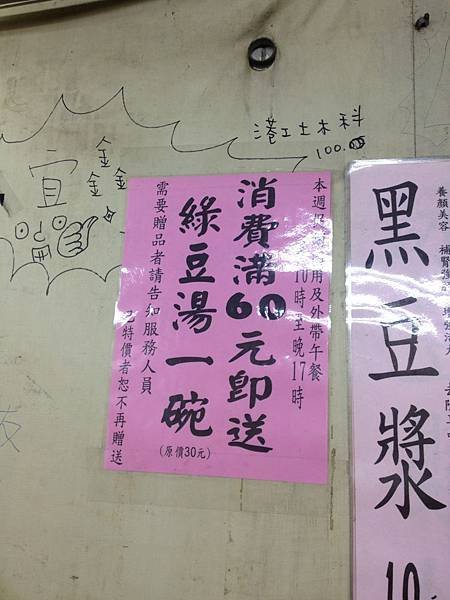 港工土木科
100.05
宜
金金
金金
金金
本週
用及外帶午餐
10時至晚17時
消費滿60元即送
綠豆湯一碗
(原價30元)
需要贈品者請告知服務人員
已特價者恕不再贈送
養顏美容
黑豆漿
10